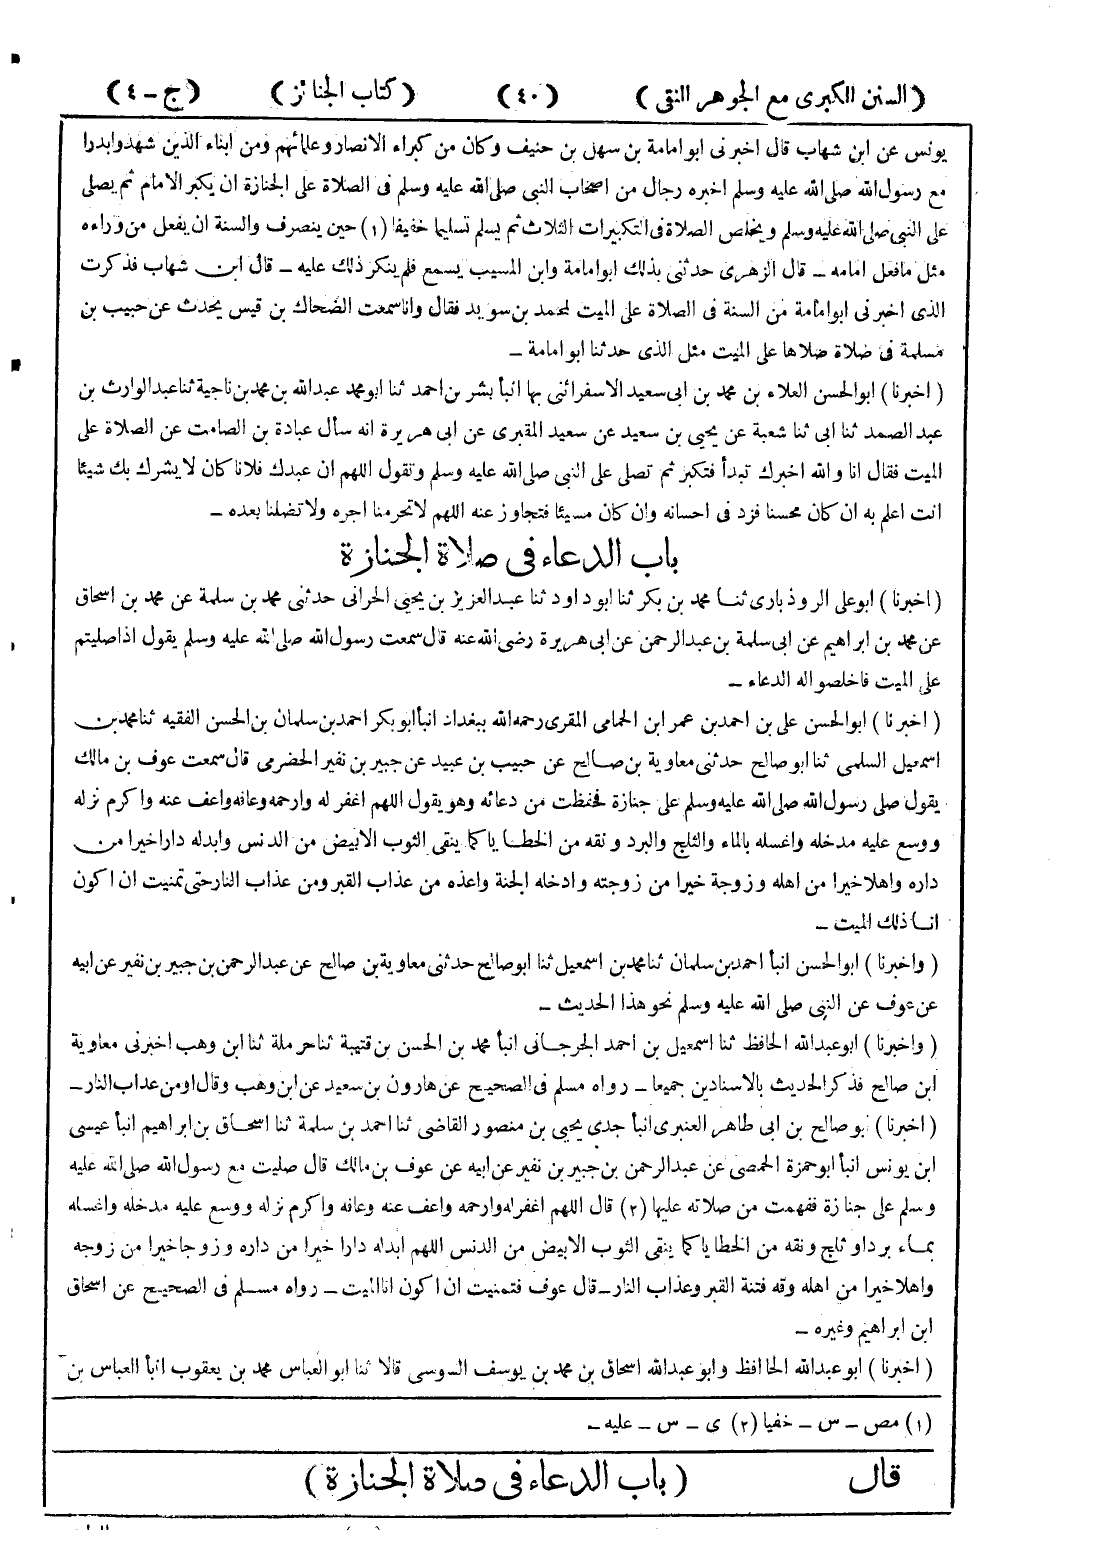 (السنن الكبرى مع الجوهر النقى) (٤٠) (كتاب الجنائز) (ج-٤)
يونس عن ابن شهاب قال اخبرنى ابو امامة بن سهل بن حنيف وكان من كبراء الانصار وعلمائهم ومن ابناء الذين شهدوا بدرا
مع رسول الله صلى الله عليه وسلم اخبره رجال من اصحاب النبى صلى الله عليه وسلم فى الصلاة على الجنازة ان يكبر الامام ثم يصلى
على النبى صلى الله عليه وسلم ويخلص الصلاة فى التكبيرات الثلاث ثم يسلم تسليما خفيفا (١) حين ينصرف والسنة ان يفعل من وراءه
مثل مافعل امامه ــ قال الزهرى حدثنى بذلك ابوامامة وابن المسيب يسمع فلم ينكر ذلك عليه ــ قال ابن شهاب فذكرت
الذى اخبرنى ابوامامة من السنة فى الصلاة على الميت لمحمد بن سويد فقال وانا سمعت الضحاك بن قيس يحدث عن حبيب بن
مسلمة فى صلاة صلاها على الميت مثل الذى حدثنا ابوامامة ــ
(اخبرنا) ابوالحسن العلاء بن محمد بن ابى سعيد الاسفرائنى بها انبأ بشر بن احمد ثنا ابومحمد عبدالله بن محمد بن ناجية ثنا عبدالوارث بن
عبد الصمد ثنا ابى ثنا شعبة عن يحيى بن سعيد عن سعيد المقبرى عن ابى هريرة انه سأل عبادة بن الصامت عن الصلاة على
الميت فقال انا والله اخبرك تبدأ فتكبر ثم تصلى على النبى صلى الله عليه وسلم وتقول اللهم ان عبدك فلانا كان لايشرك بك شيئا
انت اعلم به ان كان محسنا فزد فى احسانه وان كان مسيئا فتجاوز عنه اللهم لاتحرمنا اجره ولاتضلنا بعده ــ
باب الدعاء فى صلاة الجنازة
(اخبرنا) ابوعلى الروذبارى ثنا محمد بن بكر ثنا ابوداود ثنا عبدالعزيز بن يحيى الحرانى حدثنى محمد بن سلمة عن محمد بن اسحاق
عن محمد بن ابراهيم عن ابى سلمة بن عبدالرحمن عن ابى هريرة رضى الله عنه قال سمعت رسول الله صلى الله عليه وسلم يقول اذاصليتم
على الميت فاخلصواله الدعاء ــ
(اخبرنا) ابوالحسن على بن احمد بن عمر ابن الحمامى المقرى رحمه الله ببغداد انبأ ابوبكر احمد بن سلمان بن الحسن الفقيه ثنا محمد بن
اسمعيل السلمى ثنا ابوصالح حدثنى معاوية بن صالح عن حبيب بن عبيد عن جبير بن نفير الحضرمى قال سمعت عوف بن مالك
يقول صلى رسول الله صلى الله عليه وسلم على جنازة فحفظت من دعائه وهو يقول اللهم اغفر له وارحمه وعافه واعف عنه واكرم نزله
ووسع عليه مدخله واغسله بالماء والثلج والبرد ونقه من الخطايا كما ينقى الثوب الابيض من الدنس وابدله داراخيرا من
داره واهلاخيرا من اهله وزوجة خيرا من زوجته وادخله الجنة واعذه من عذاب القبر ومن عذاب النار حتى تمنيت ان اكون
انا ذلك الميت ــ
(واخبرنا) ابوالحسن انبأ احمد بن سلمان ثنا محمد بن اسمعيل ثنا ابوصالح حدثنى معاوية بن صالح عن عبدالرحمن بن جبير بن نفير عن ابيه
عن عوف عن النبى صلى الله عليه وسلم نحو هذا الحديث ــ
(واخبرنا) ابوعبدالله الحافظ ثنا اسمعيل بن احمد الجرجانى انبأ محمد بن الحسن بن قتيبة ثنا حرملة ثنا ابن وهب اخبرنى معاوية
ابن صالح فذكر الحديث بالاسنادين جميعا ــ رواه مسلم فى الصحيح عن هارون بن سعيد عن ابن وهب وقال اومن عذاب النار ــ
(اخبرنا) ابوصالح بن ابى طاهر العنبرى انبأ جدى يحيى بن منصور القاضى ثنا احمد بن سلمة ثنا اسحاق بن ابراهيم انبأ عيسى
ابن يونس انبأ ابوحمزة الحمصى عن عبدالرحمن بن جبير بن نفير عن ابيه عن عوف بن مالك قال صليت مع رسول الله صلى الله عليه
وسلم على جنازة ففهمت من صلاته عليها (٢) قال اللهم اغفرله وارحمه واعف عنه وعافه واكرم نزله ووسع عليه مدخله واغسله
بماء برد او ثلج ونقه من الخطايا كما ينقى الثوب الابيض من الدنس اللهم ابدله دارا خيرا من داره وزوجاخيرا من زوجه
واهلاخيرا من اهله وقه فتنة القبر وعذاب النار ــ قال عوف فتمنيت ان اكون اناالميت ــ رواه مسلم فى الصحيح عن اسحاق
ابن ابراهيم وغيره ــ
(اخبرنا) ابوعبدالله الحافظ وابوعبدالله اسحاق بن محمد بن يوسف السوسى قالا ثنا ابوالعباس محمد بن يعقوب انبأ العباس بن
(١) مص ــ س ــ خفيا (٢) ى ــ س ــ عليه ــ
قال (باب الدعاء فى صلاة الجنازة)